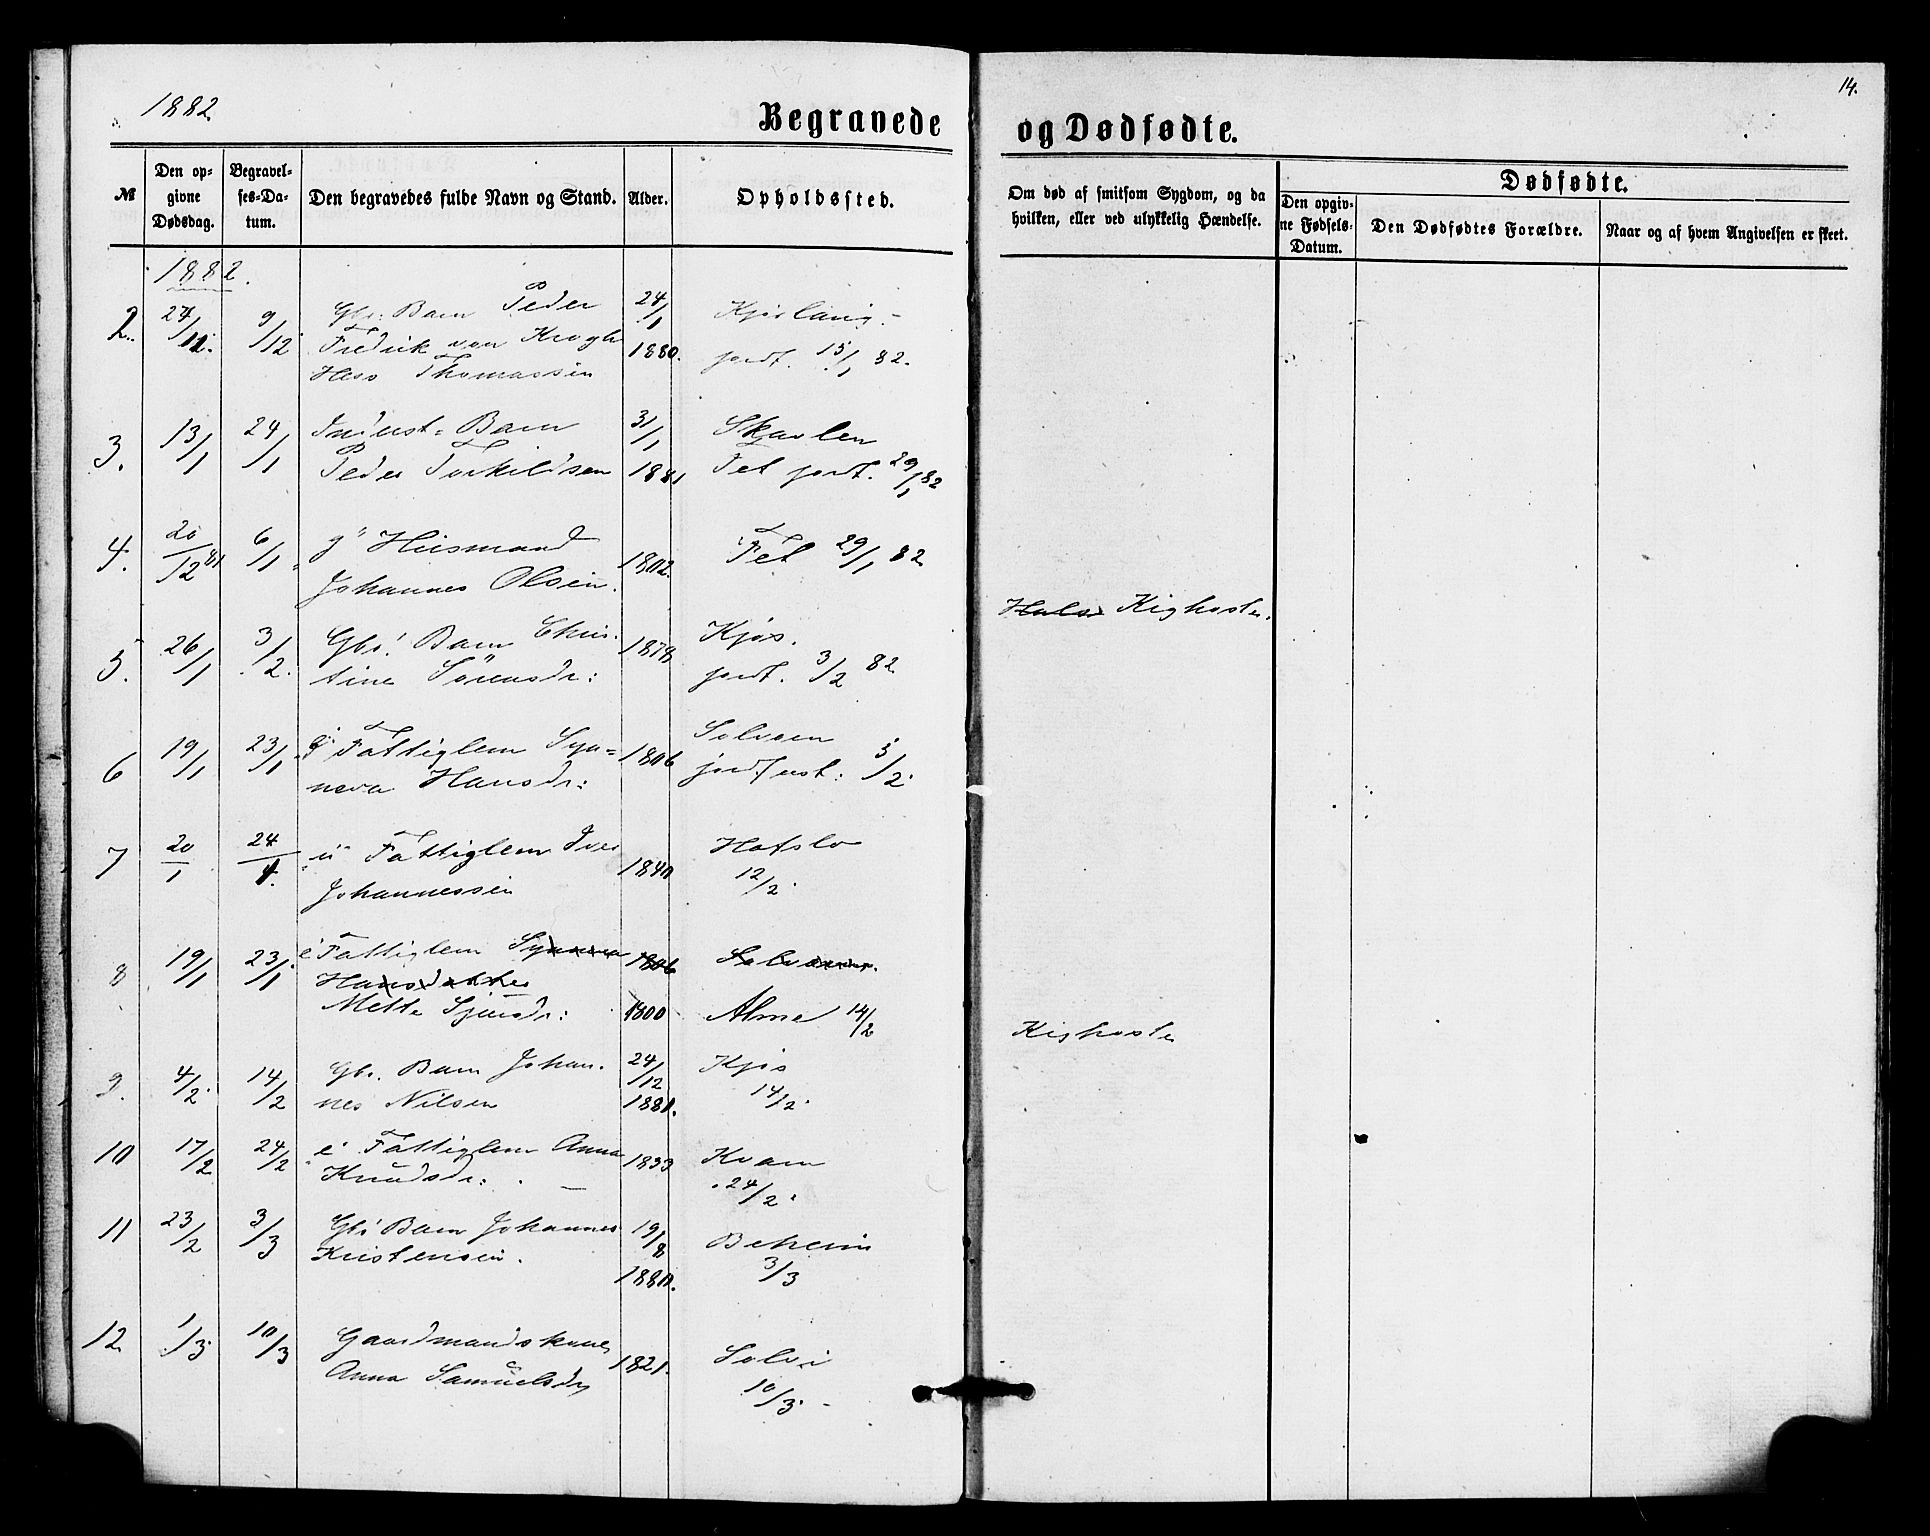 1882
Begravede
og Dødfødte.
14.
№
Den opgivne Dødsdag.
Begravelses-Datum.
Den begravedes fulde Navn og Stand.
Alder.
Opholdssted.
Om død af smitsom Sygdom, og da hvilken, eller ved ulykkelig Hændelse.
Dødfødte.
Den opgivne Fødsels-Datum.
Den Dødfødtes Forældre.
Naar og af hvem Angivelsen er skeet.
1882.
2. 9/12 Gbr. Barn Peder 24/1
Fredrik von Krogh 1880. jordf. 15/1 82.
Hess Thomassen
3. 13/1 24/1 Inderst. Barn 31/1 Skavlen
Peder Torkildsen 1881 Fet jordf. 29/1 82
4. 20/12 81 6/1 g Husmand 1802. Fet 29/1 82
Johannes Olsen.
Kighoste.
5. 26/1 3/2. Gbr. Barn Chris- 1878 Kjøs.
tine Sörensdr: jordf. 3/2 82
6 19/1 23/1 Fattiglem Syn- 1806 Solvoen
neva Hansdr: jordfest: 5/2.
7 20/1 24/1. u Fattiglem Iver 1840 Hafslo
Johannessen 12/2.
8 19/1 23/1. e Fattiglem Synneva 1806
Hansdatter
Mette Sjursdr: 1800 Alme 14/2
Kighoste
9. 4/2. 14/2 Gbr. Barn Johan- 24/12 Kjøs
nes Nilsen 1881. 14/2.
10 17/2 24/2 e Fattiglem Anna 1833 Kvam
Knudsdr: 24/2.
11 23/2 3/3 Gbr Barn Johannes 19/8 Beheim
Kristensen. 1880. 3/3
12 1/3 10/3 Gaardmandskone 1821. Solvi
Anna Samuelsdr 10/3.